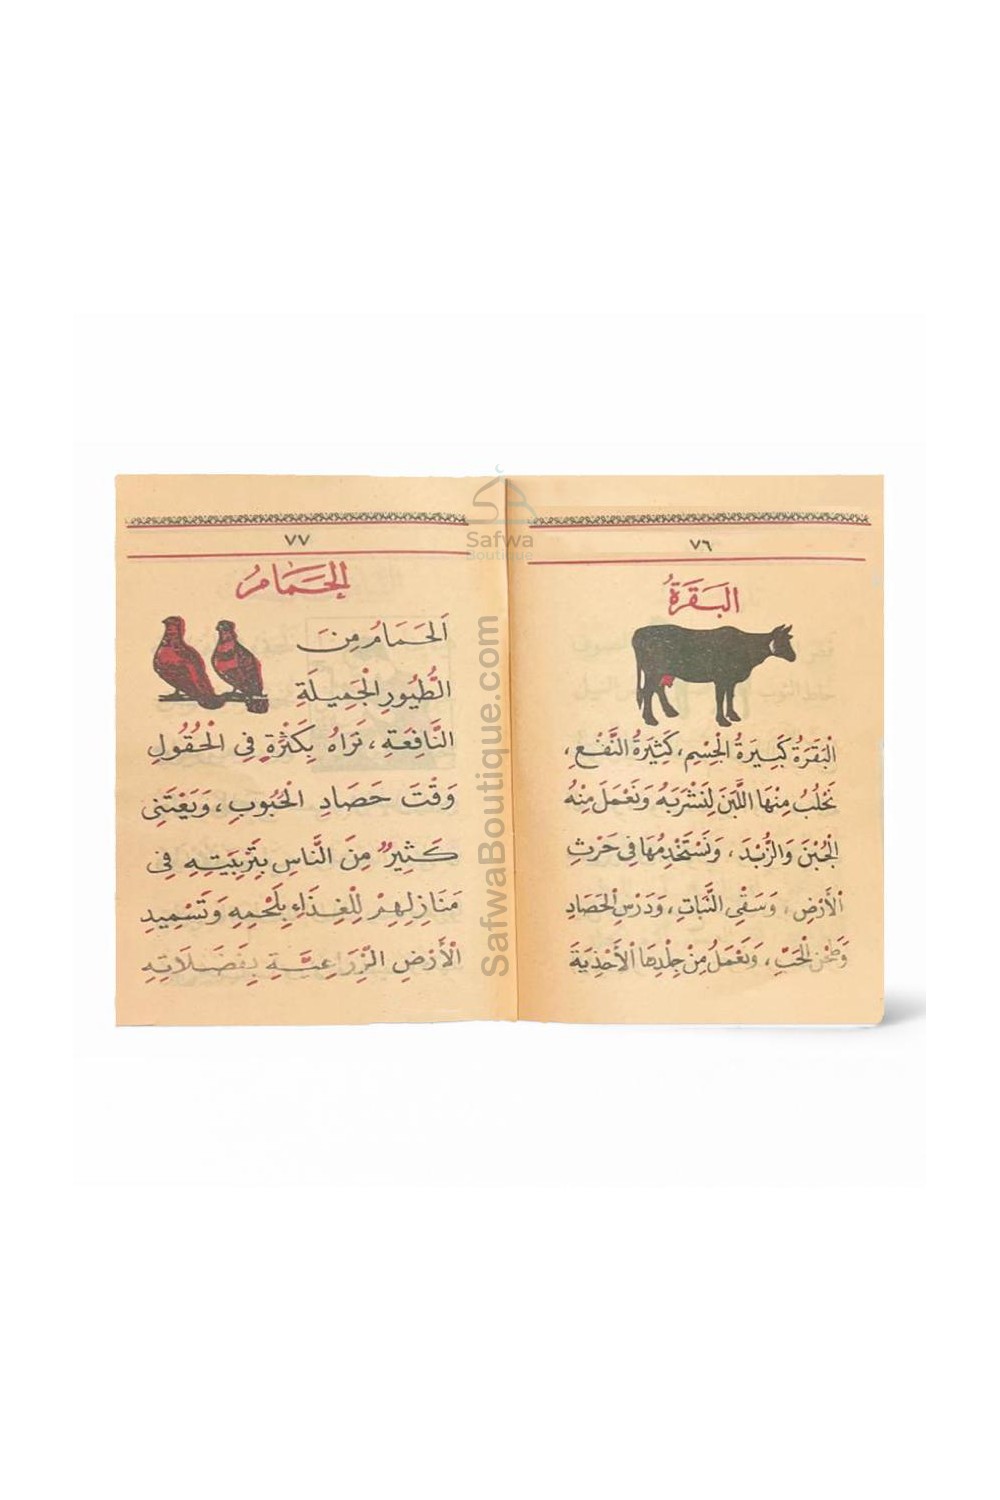 ٧٦
البَقَرَةُ
البَقَرَةُ كَبِيرَةُ الْجِسْمِ، كَثِيرَةُ النَّفْعِ،
نَحْلُبُ مِنْهَا اللَّبَنَ لِنَشْرَبَهُ وَنَعْمَلَ مِنْهُ
الْجُبْنَ وَالزُّبْدَ، وَنَسْتَخْدِمُهَا فِي حَرْثِ
الْأَرْضِ، وَسَقْيِ النَّبَاتِ، وَدَرْسِ الْحَصَادِ
وَطَحْنِ الْحَبِّ، وَنَعْمَلُ مِنْ جِلْدِهَا الْأَحْذِيَةَ
٧٧
الحَمَامُ
اَلحَمَامُ مِنَ
الطُّيُورِ الْجَمِيلَةِ
النَّافِعَةِ، نَرَاهُ بِكَثْرَةٍ فِي الْحُقُولِ
وَقْتَ حَصَادِ الْحُبُوبِ، وَيَعْتَنِي
كَثِيرٌ مِنَ النَّاسِ بِتَرْبِيَتِهِ فِي
مَنَازِلِهِمْ لِلْغِذَاءِ بِلَحْمِهِ وَتَسْمِيدِ
الْأَرْضِ الزِّرَاعِيَّةِ بِفَضَلَاتِهِ
Safwa
Boutique
SafwaBoutique.com